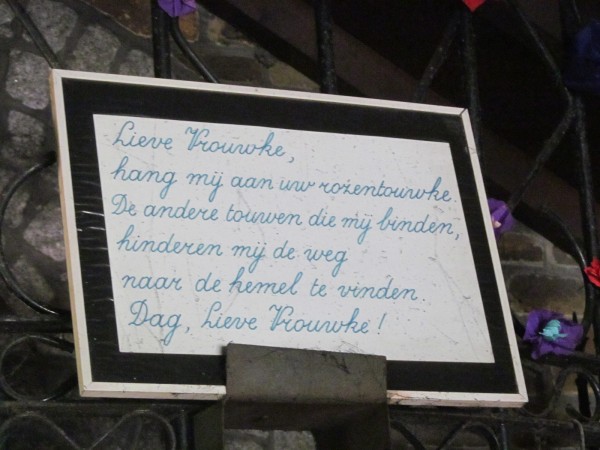 Lieve Vrouwke,
hang mij aan uw rozentouwke.
De andere touwen die mij binden,
hinderen mij de weg
naar de hemel te vinden.
Dag, Lieve Vrouwke!